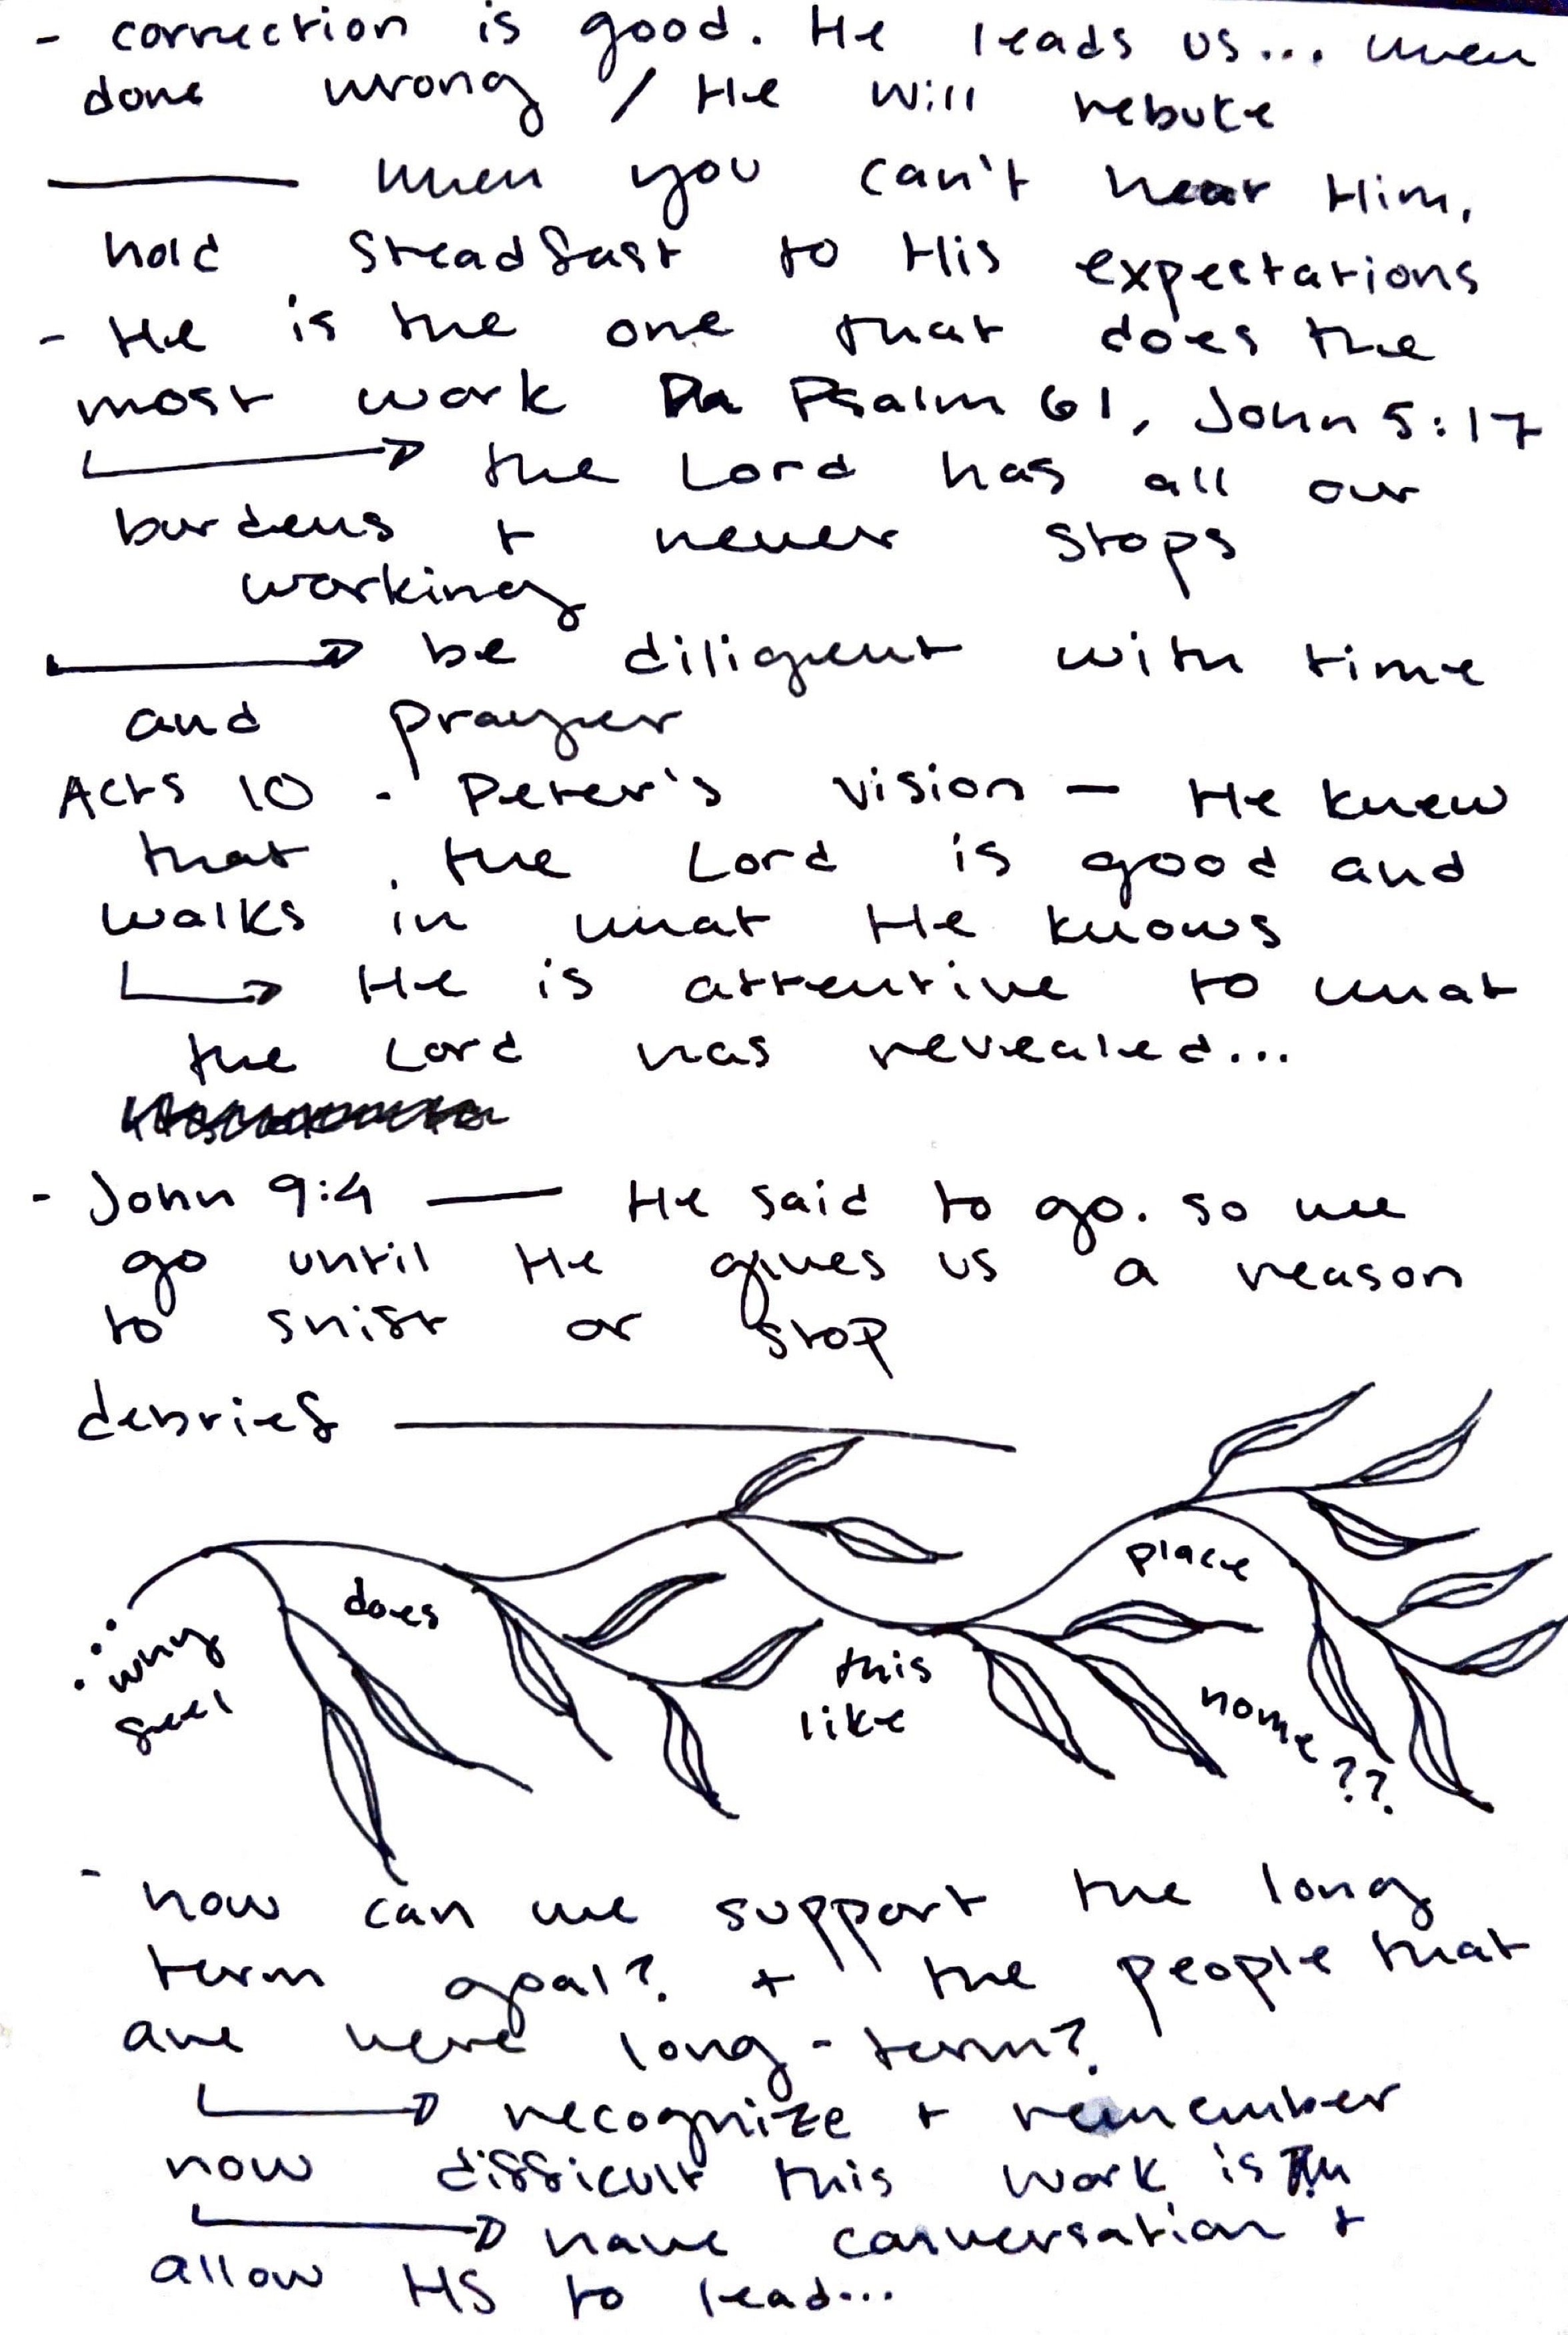 - correction is good. He leads us... when
done wrong / He will rebuke
—— when you can't hear Him,
hold steadfast to His expectations
- He is the one that does the
most work Psalm 61, John 5:17
→ the Lord has all our
burdens + never stops
working
→ be diligent with time
and prayer
Acts 10 - Peter's vision — He knew
that the Lord is good and
walks in what He knows
↳ He is attentive to what
the Lord has revealed...
- John 9:4 —— He said to go. so we
go until He gives us a reason
to shift or stop
debrief ——
why
feel
does
this
like
place
home??
- how can we support the long
term goal? + the people that
are here long-term?
↳ recognize + remember
how difficult this work is
↳ have conversation +
allow HS to lead...